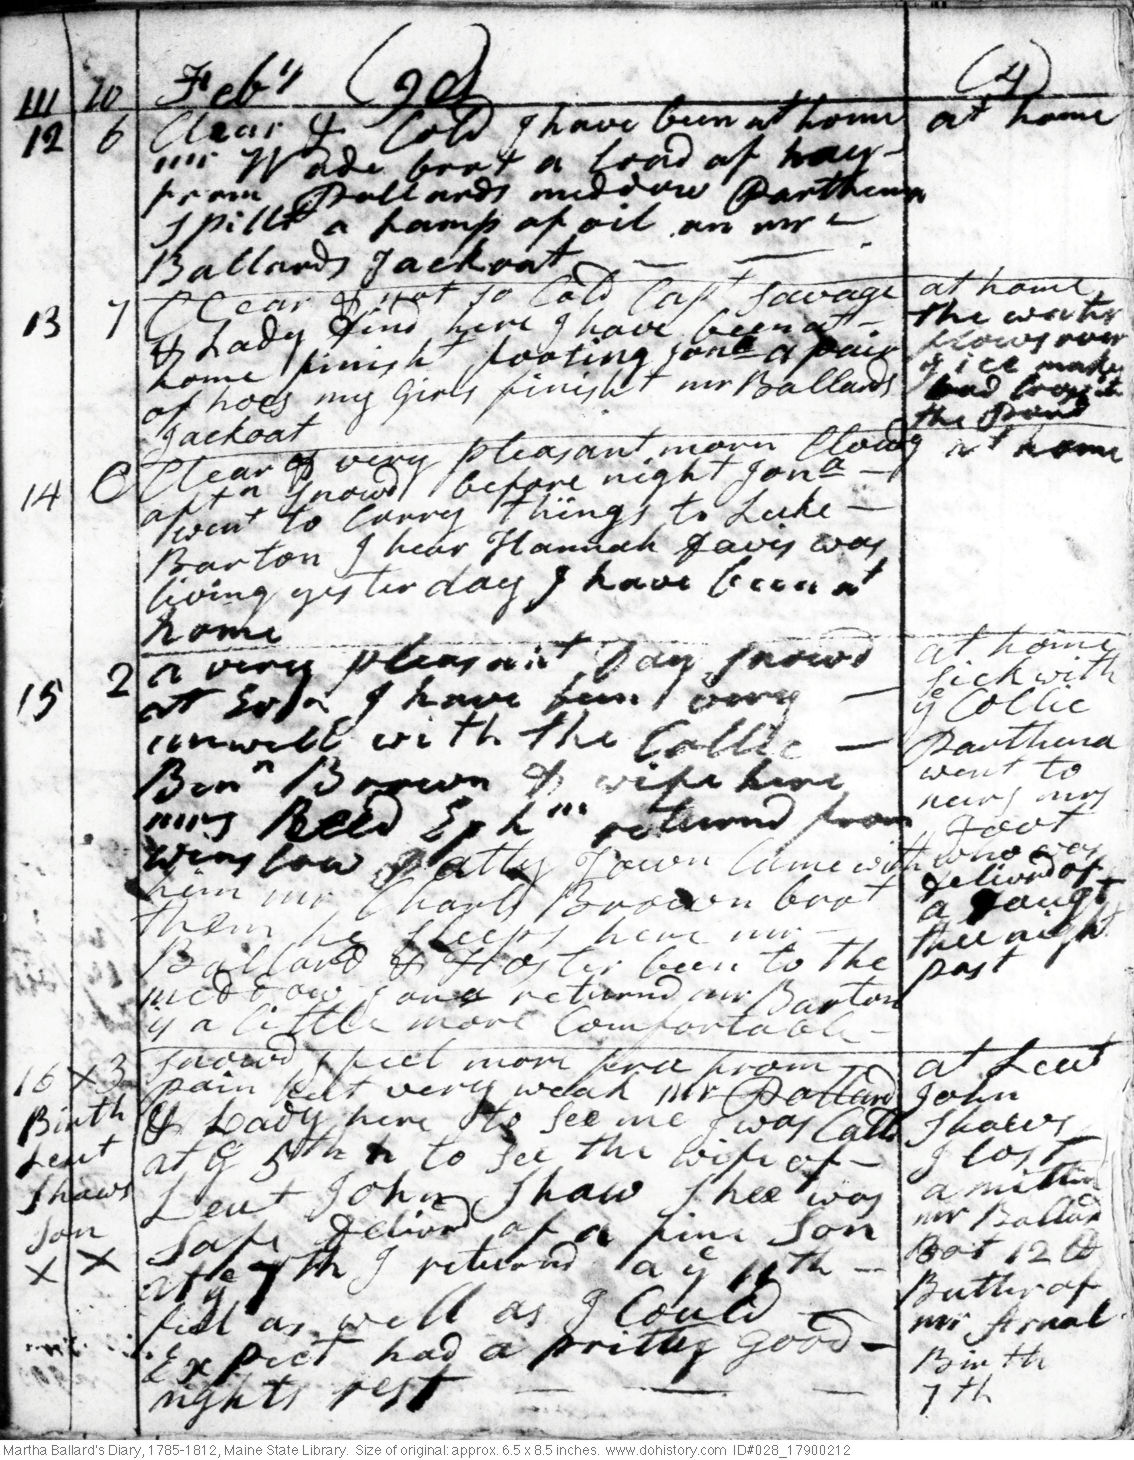 Feb'y (90) (4)
12 6 Clear & Cold I have been at home
mr Wade brot a load of hay
from Pollards meddow Parthena
spillt a Lamp of oil on mr
Ballards Jackoat
at home
13 7 Clear & not so Cold Capt Savage
& Lady dind here I have been at
home finisht footing Jona a pair
of hoes my Girls finisht mr Ballards
Jackoat
at home
the water
flows over
ye ice makes
bad
the Pond
14 C Clear & very pleasant morn Clowdy
aftn Snowd before night Jona
went to Carry things to Luke
Barton I hear Hannah Davis was
living yesterday I have been at
home
at home
15 2 a very pleasant Day snowd
at Evn I have been very
unwell with the Collic
Benn Brown & wife here
mrs Reed Ephm returnd from
winslow Patty Town Came with
him mr Charls Brown brot
them he sleeps here mr
Ballard & Foster been to the
meddow Jona returnd mr Barton
is a little more Comfortable
at home
sick with
ye Collic
Parthena
went to
mrs
Foot
who was
delivrd of
a Daught
thee night
past
16 x 3 snowd I feel more free from
pain but very weak mr Pollard
& Lady here to See me I was Calld
at ye 5th h to See the wife of
Leut John Shaw Shee was
Safe Delivrd of a fine Son
at ye 7th I returnd a ye 11th
feel as well as I Could
Expect had a pritty good
nights rest
Birth
Leut
Shaws
Son
X X
at Leut
John
Shaws
I lost
a mittin
mr Ballard
Brot 12 lb
Butter of
mr
Birth
7th
Martha Ballard's Diary, 1785-1812, Maine State Library. Size of original: approx. 6.5 x 8.5 inches. www.dohistory.com ID#028_17900212